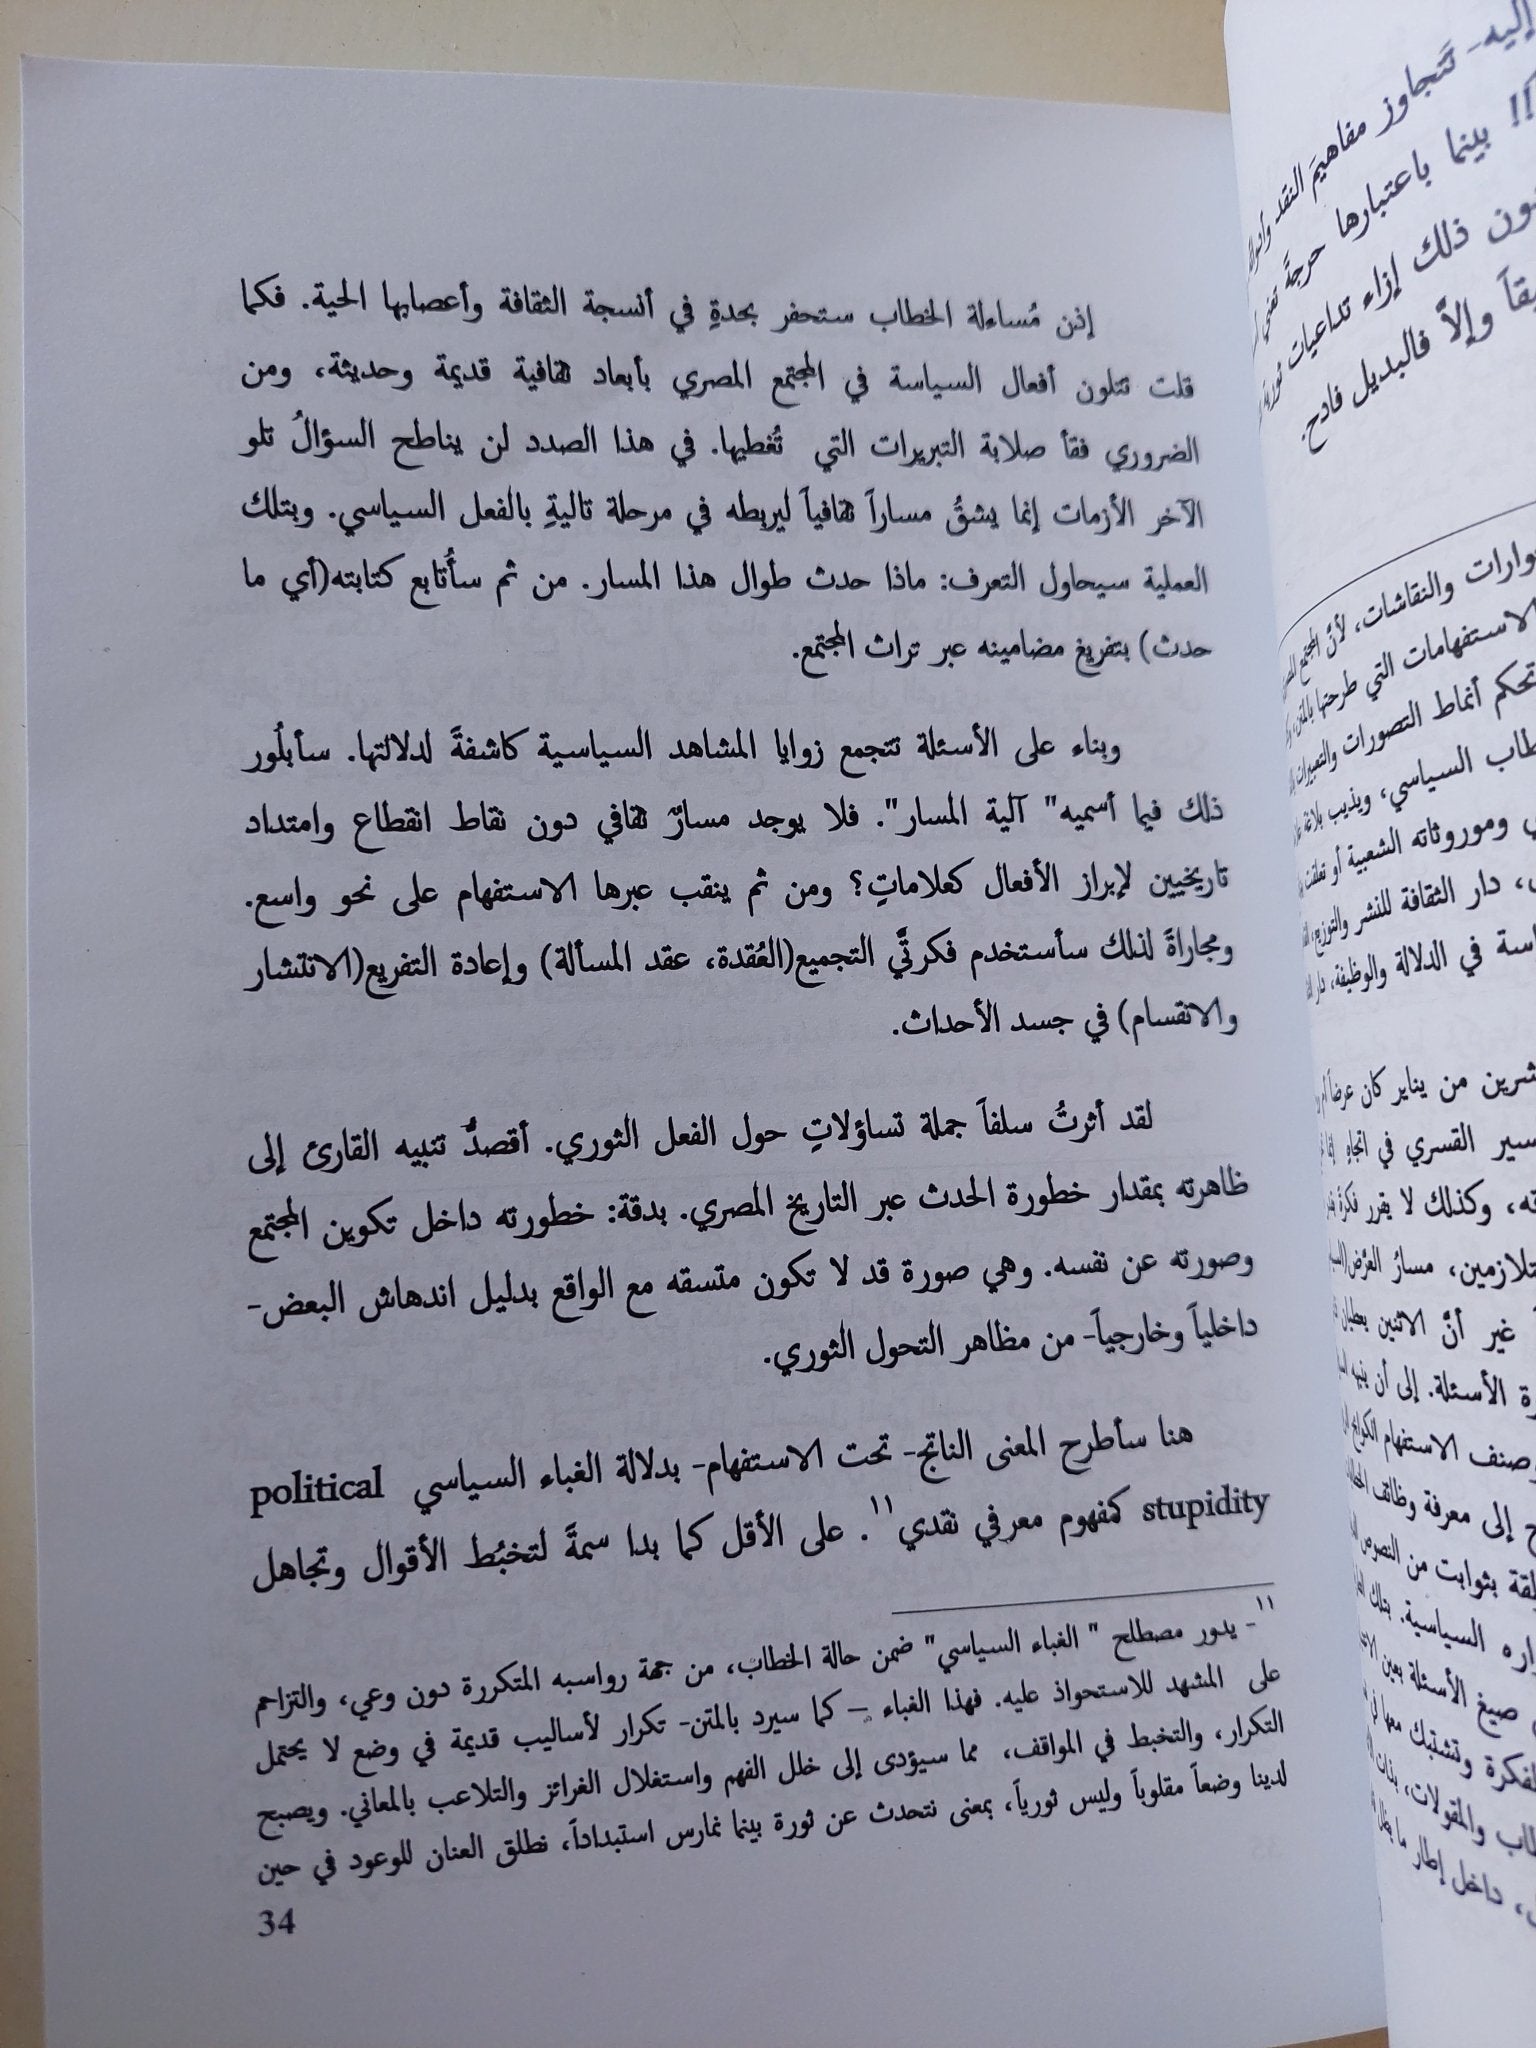 إذن مُساءلة الخطاب ستحفر بحدةٍ في أنسجة الثقافة وأعصابها الحية. فكما
قلت تتلون أفعال السياسة في المجتمع المصري بأبعاد ثقافية قديمة وحديثة، ومن
الضروري فقأ صلابة التبريرات التي تُغطيها. في هذا الصدد لن يناطح السؤالُ تلو
الآخر الأزمات إنما يشقُ مساراً ثقافياً ليربطه في مرحلة تاليةٍ بالفعل السياسي. وبتلك
العملية سيحاول التعرف: ماذا حدث طوال هذا المسار. من ثم سأُتابع كتابته(أي ما
حدث) بتفريغ مضامينه عبر تراث المجتمع.
وبناء على الأسئلة تتجمع زوايا المشاهد السياسية كاشفةً لدلالتها. سأبلُور
ذلك فيما أسميه" آلية المسار". فلا يوجد مسارٌ ثقافي دون نقاط انقطاع وامتداد
تاريخيين لإبراز الأفعال كعلاماتٍ؟ ومن ثم ينقب عبرها الاستفهام على نحو واسع.
ومجاراةً لذلك سأستخدم فكرتَّي التجميع(العُقدة، عقد المسألة) وإعادة التفريع(الانتشار
والانقسام) في جسد الأحداث.
لقد أثرتُ سلفاً جملة تساؤلاتٍ حول الفعل الثوري. أقصدُّ تنبيه القارئ إلى
ظاهرته بمقدار خطورة الحدث عبر التاريخ المصري. بدقة: خطورته داخل تكوين المجتمع
وصورته عن نفسه. وهي صورة قد لا تكون متسقه مع الواقع بدليل اندهاش البعض-
داخلياً وخارجياً- من مظاهر التحول الثوري.
هنا سأطرح المعنى الناتج- تحت الاستفهام- بدلالة الغباء السياسي political
stupidity كمفهوم معرفي نقدي١١. على الأقل كما بدا سمةً لتخبُط الأقوال وتجاهل
١١- يدور مصطلح " الغباء السياسي" ضمن حالة الخطاب، من جهة رواسبه المتكررة دون وعي، والتزاحم
على المشهد للاستحواذ عليه. فهذا الغباء – كما سيرد بالمتن- تكرار لأساليب قديمة في وضع لا يحتمل
التكرار، والتخبط في المواقف، مما سيؤدى إلى خلل الفهم واستغلال الغرائز والتلاعب بالمعاني. ويصبح
لدينا وضعاً مقلوباً وليس ثورياً، بمعنى نتحدث عن ثورة بينما نمارس استبداداً، نطلق العنان للوعود في حين
34
إليه- تَتجاوز مفاهيمَ النقد
بينما باعتبارها حرجةً
ذلك إزاء تداعيات
وإلاَّ فالبديل فادح.
والنقاشات، لأنَّ المجتمع
الاستفهامات التي طرحتها بالمتن
تحكم أنماط التصورات والتعبيرات
السياسي، ويذيب بلاغة
وموروثاته الشعبية أو تعلقت
دار الثقافة للنشر والتوزيع
في الدلالة والوظيفة، دار
من يناير كان عرضاً
القسري في اتجاهٍ
وكذلك لا يقرر فكرة
مسارُ العرْض
غير أنَّ الاثنين يعطيان
الأسئلة. إلى أن ينبه
وصنف الاستفهام
إلى معرفة وظائف
بثوابت من النصوص
السياسية. بتلك
صيغ الأسئلة بعين
وتشتبك معها في
والمقولات، بذات
داخل إطار ما